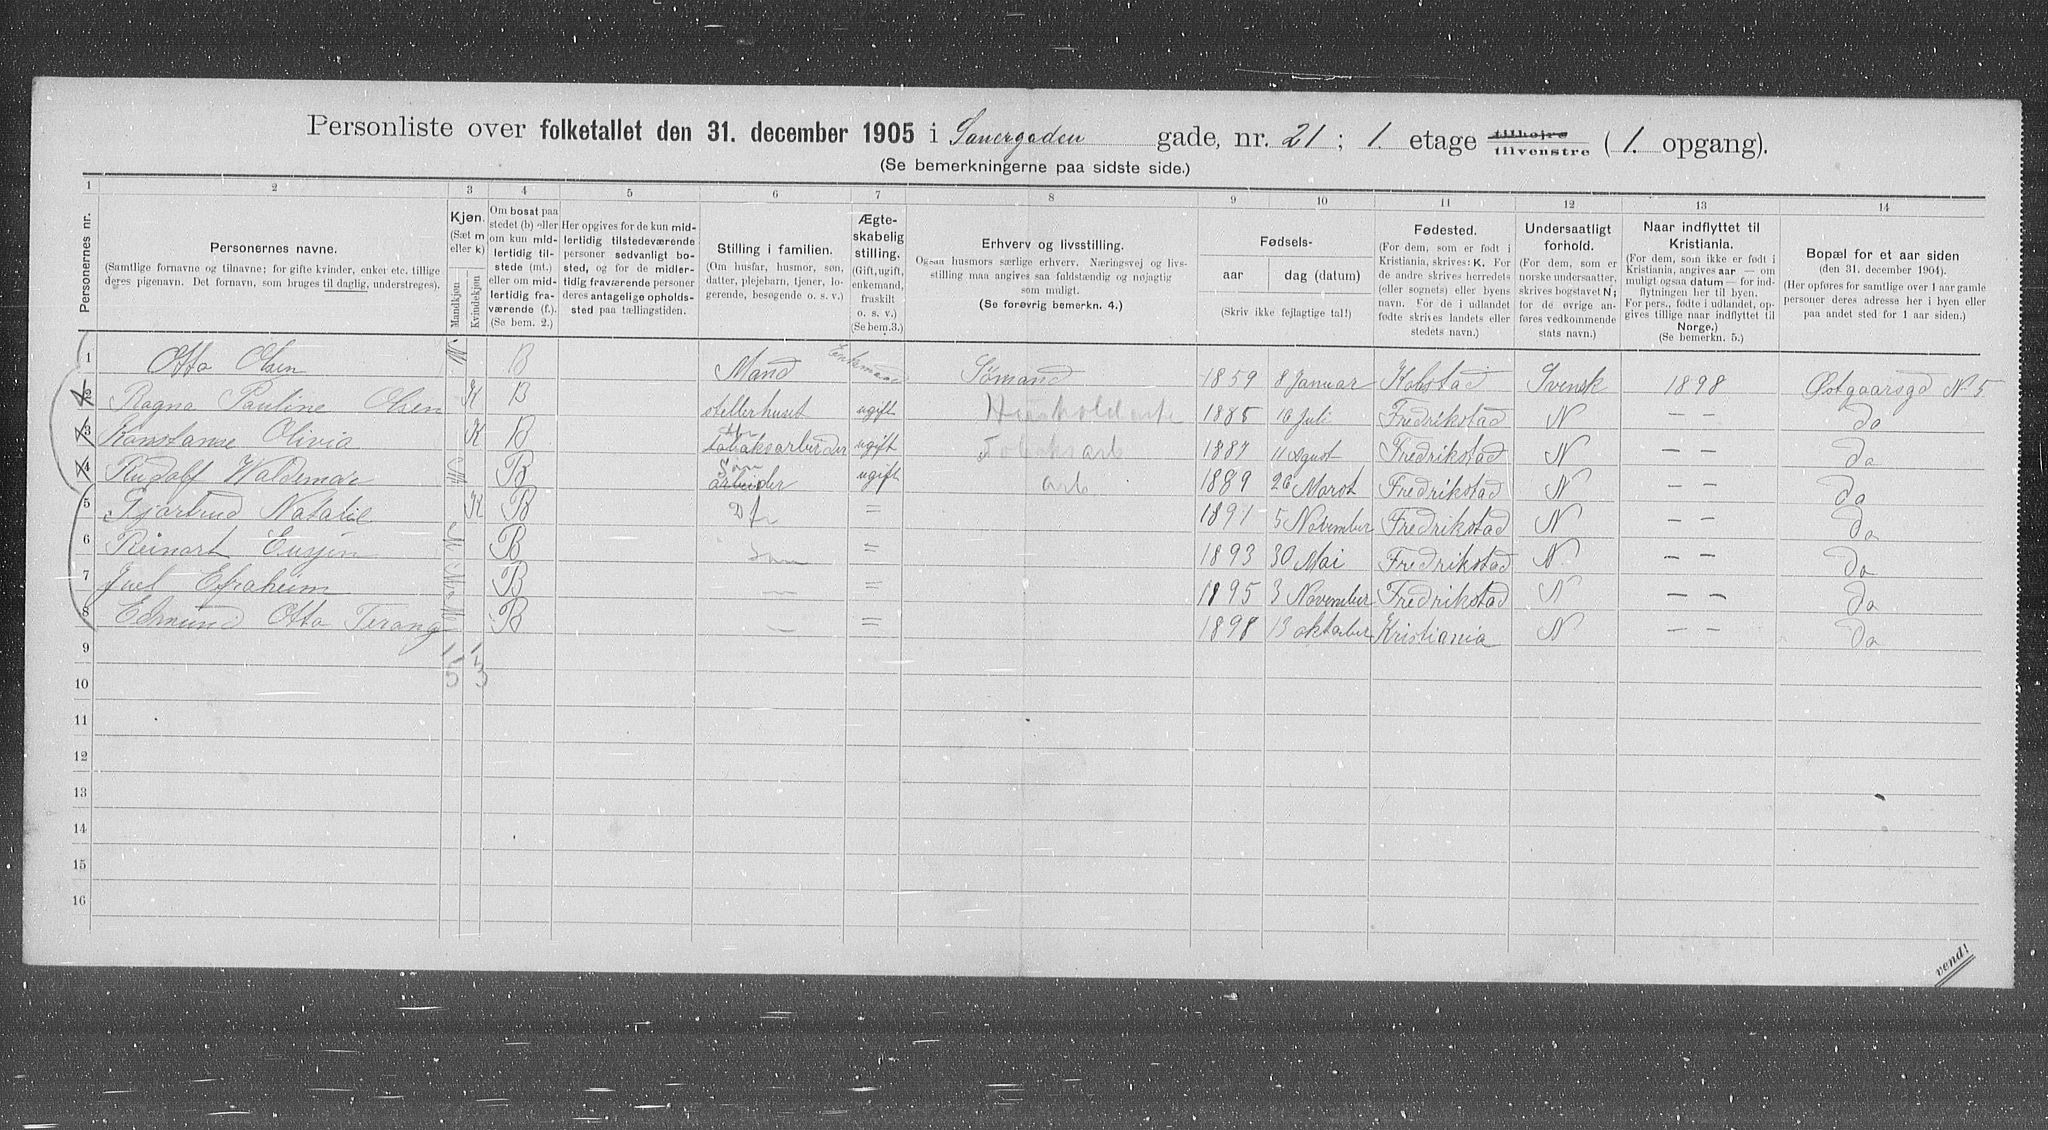 Personliste over folketallet den 31. december 1905 i Sanergaden gade, nr. 21; 1. etage tilhøjre tilvenstre (1. opgang).
(Se bemerkningerne paa sidste side.)
1 2 3 4 5 6 7 8 9 10 11 12 13 14
Personernes nr.
Personernes navne.
(Samtlige fornavne og tilnavne; for gifte kvinder, enker etc. tillige
deres pigenavn. Det fornavn, som bruges til daglig, understreges).
Kjøn.
(Sæt m
eller k)
Mandkjøn
Kvindekjøn
Om bosat paa
stedet (b) eller
om kun mid-
lertidig til-
stede (mt.)
eller om mid-
lertidig fra-
værende (f.).
(Se bem. 2.)
Her opgives for de kun mid-
lertidig tilstedeværende
personer sedvanlig bo-
sted, og for de midler-
tidig fraværende personer
deres antagelige opholds-
sted paa tællingstiden.
Stilling i familien.
(Om husfar, husmor, søn,
datter, plejebarn, tjener, lo-
gerende, besøgende o. s. v.)
Ægte-
skabelig
stilling.
(Gift, ugift,
enkemand,
fraskilt
o. s. v.)
(Se bem. 3.)
Erhverv og livsstilling.
Ogsaa husmors særlige erhverv. Næringsvej og livs-
stilling maa angives saa fuldstændig og nøjagtig
som muligt.
(Se forøvrig bemerkn. 4.)
Fødsels-
aar dag (datum)
(Skriv ikke fejlagtige tal!)
Fødested.
(For dem, som er født i
Kristiania, skrives: K. For
de andre skrives herredets
(eller sognets) eller byens
navn. For de i udlandet
fødte skrives landets eller
stedets navn.)
Undersaatligt
forhold.
(For dem, som er
norske undersaatter,
skrives bogstavet N;
for de øvrige an-
føres vedkommende
stats navn.)
Naar indflyttet til
Kristiania.
(For dem, som ikke er født i
Kristiania, angives aar — om
muligt ogsaa datum — for ind-
flytningen her til byen.
For pers., fødte i udlandet, op-
gives tillige naar indflyttet til
Norge.)
(Se bemerkn. 5.)
Bopæl for et aar siden
(den 31. december 1904).
(Her opføres for samtlige over 1 aar gamle
personer deres adresse her i byen eller
paa andet sted for 1 aar siden.)
1 Otto Olsen M B Mand Enkemand Sømand 1859 8 Januar Svensk 1898 Østgaarsgd No 5
2 Ragna Pauline Olsen K B stellerhuset ugift 1885 16 Juli Fredrikstad N — — do
3 Konstanse Olivia K B tobaksarbeider ugift Tobaksarb 1887 11 Fredrikstad N — — do
4 Rudolf Waldemar M B Søn arbeider ugift arb 1889 26 Marst Fredrikstad N — — do
5 Natalie K B = 1891 5 November Fredrikstad N — — do
6 Reinart M B Søn = 1893 30 Mai Fredrikstad N — — do
7 Juel Efraheim M B — = 1895 3 November Fredrikstad N — — do
8 Edmund Otto M B — = 1898 13 oktober Kristiania N — — do
9 1 1
10 5 3
11
12
13
14
15
16
vend!